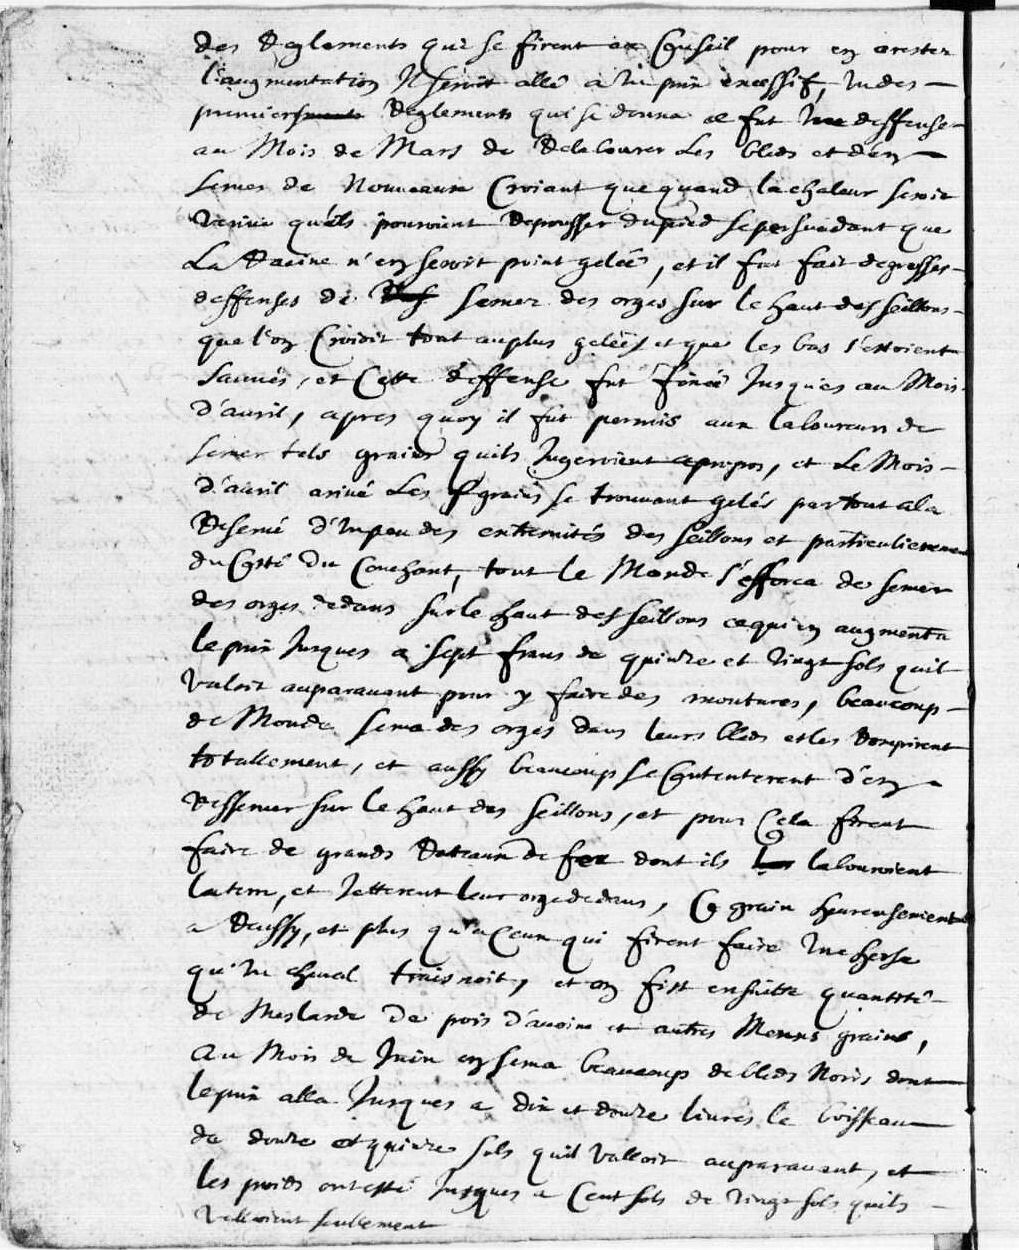 des Reglements qui se firent au Conseil pour en arester
l'augmentation Il seroit allé a un prix excessif, un des
premiers Reglements qui se donna ce fut une deffense
au Mois de Mars de Relabourer Les bleds et d'en
semer de Nouveaux Croiant que quand la chaleur seroit
venue qu'ils pouroient Repousser du pied se persuadant que
La Racine n'en seroit point gelée, et il fut fait degrosses
deffenses de semer des orges sur le haut des seillons
que l'on Croioit tout au plus gelées et que les bas s'estoient
sauvés, et Cette deffense fut Jusques au Mois
d'avril, apres quoy il fut permis aux laboureurs de
semer tels grains quils Jugeroient apropos, et Le Mois
d'avril arivé Les grains se trouvant gelés partout ala
Reserve d'Un peu des extremités des seillons et particulierement
du Costé du Couchant, tout le Monde s'efforca de semer
des orges dedans sur le haut des seillons cequi en augmenta
le prix Jusques a sept frans de quinze et vingt sols quil
valoit auparavant pour y faire des moutures, beaucoup
de Monde sema des orges dans leurs bleds et les Rompirent
totallement, et aussy beaucoup se Contenterent d'en
ressemer sur le haut des seillons, et pour Cela firent
faire de grands Rateaux de fer dont ils labouroient
la terre, et Jetterent leur orge dedans, Ce grain heureusement
a Reussy, et plus qu'a Ceux qui firent faire une herse
qu'un cheval traisnoit, et on fist ensuitte quantité
de Meslarde de pois d'avoine et autres Menus grains,
Au Mois de Juin on sema beaucoup de bleds Noirs dont
le prix alla Jusques a dix et douze livres le boisseau
de douze et quinze sols quil valloit auparavant, et
les poids ont esté Jusques a Cent sols de vingt sols quils
valloient seullement